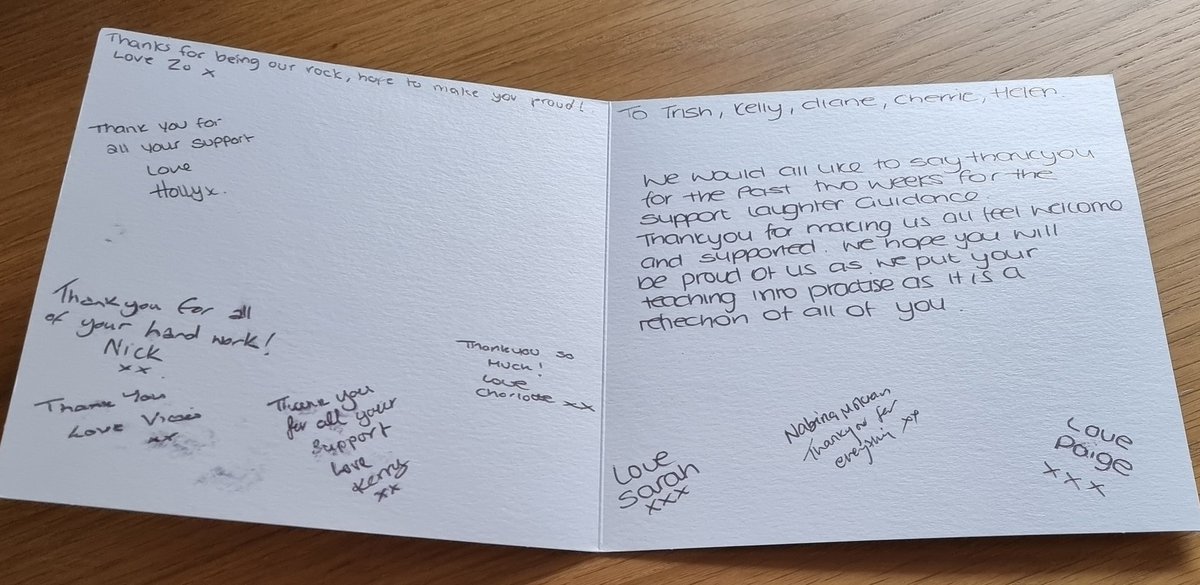 Thanks for being our rock, hope to make you proud!
Love Zo x
Thank you for
all your support
Love
Holly x.
Thankyou for all
of your hard work!
Nick
xx
Thank You
Love Vicki
xx
Thank you
for all your
support
Love
Kerry
xx
Thankyou so
Much!
Love
Charlotte xx
To Trish, Kelly, Diane, Cherrie, Helen
We would all like to say thankyou
for the past two weeks for the
support laughter Guidance
Thankyou for making us all feel welcome
and supported. We hope you will
be proud of us as we put your
teaching into practise as it is a
reflection of all of you.
Love
Sarah
xxx
Nabina
Thankyou for
xx
Love
Paige
xxx